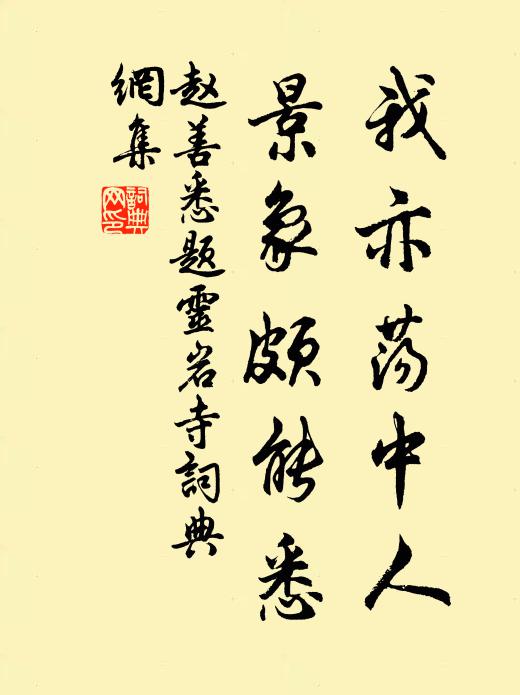 我亦荡中人
景象颇能悉
赵善悉题靈岩寺詞典
網集
詞典
网印